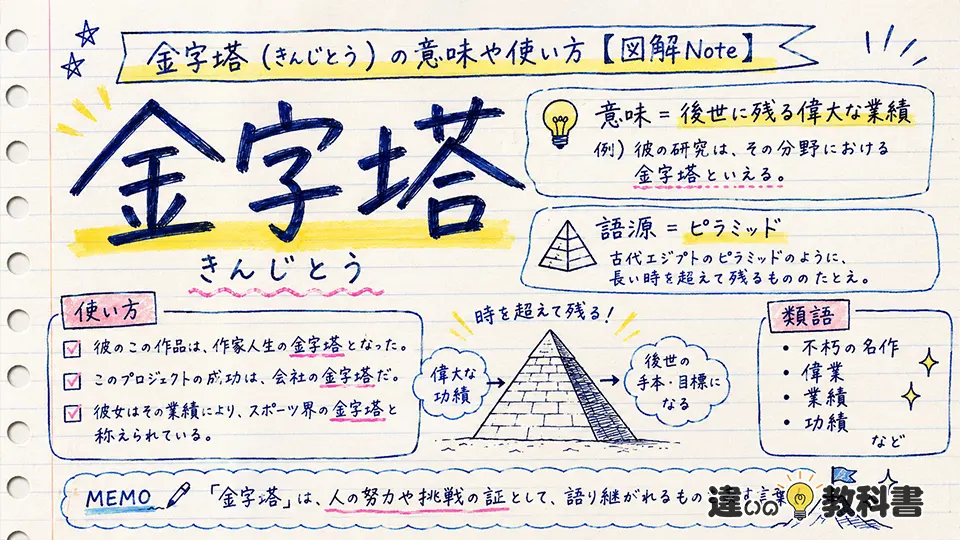 金字塔（きんじとう）の意味や使い方【図解Note】
金字塔
きんじとう
意味 = 後世に残る偉大な業績
例）彼の研究は、その分野における
金字塔といえる。
語源 = ピラミッド
古代エジプトのピラミッドのように、
長い時を超えて残るもののたとえ。
使い方
彼のこの作品は、作家人生の金字塔となった。
このプロジェクトの成功は、会社の金字塔だ。
彼女はその業績により、スポーツ界の金字塔と
称えられている。
時を超えて残る！
偉大な
功績
後世の
手本・目標に
なる
類語
・不朽の名作
・偉業
・業績
・功績
など
MEMO 「金字塔」は、人の努力や挑戦の証として、語り継がれるもの す言葉
違いの教科書